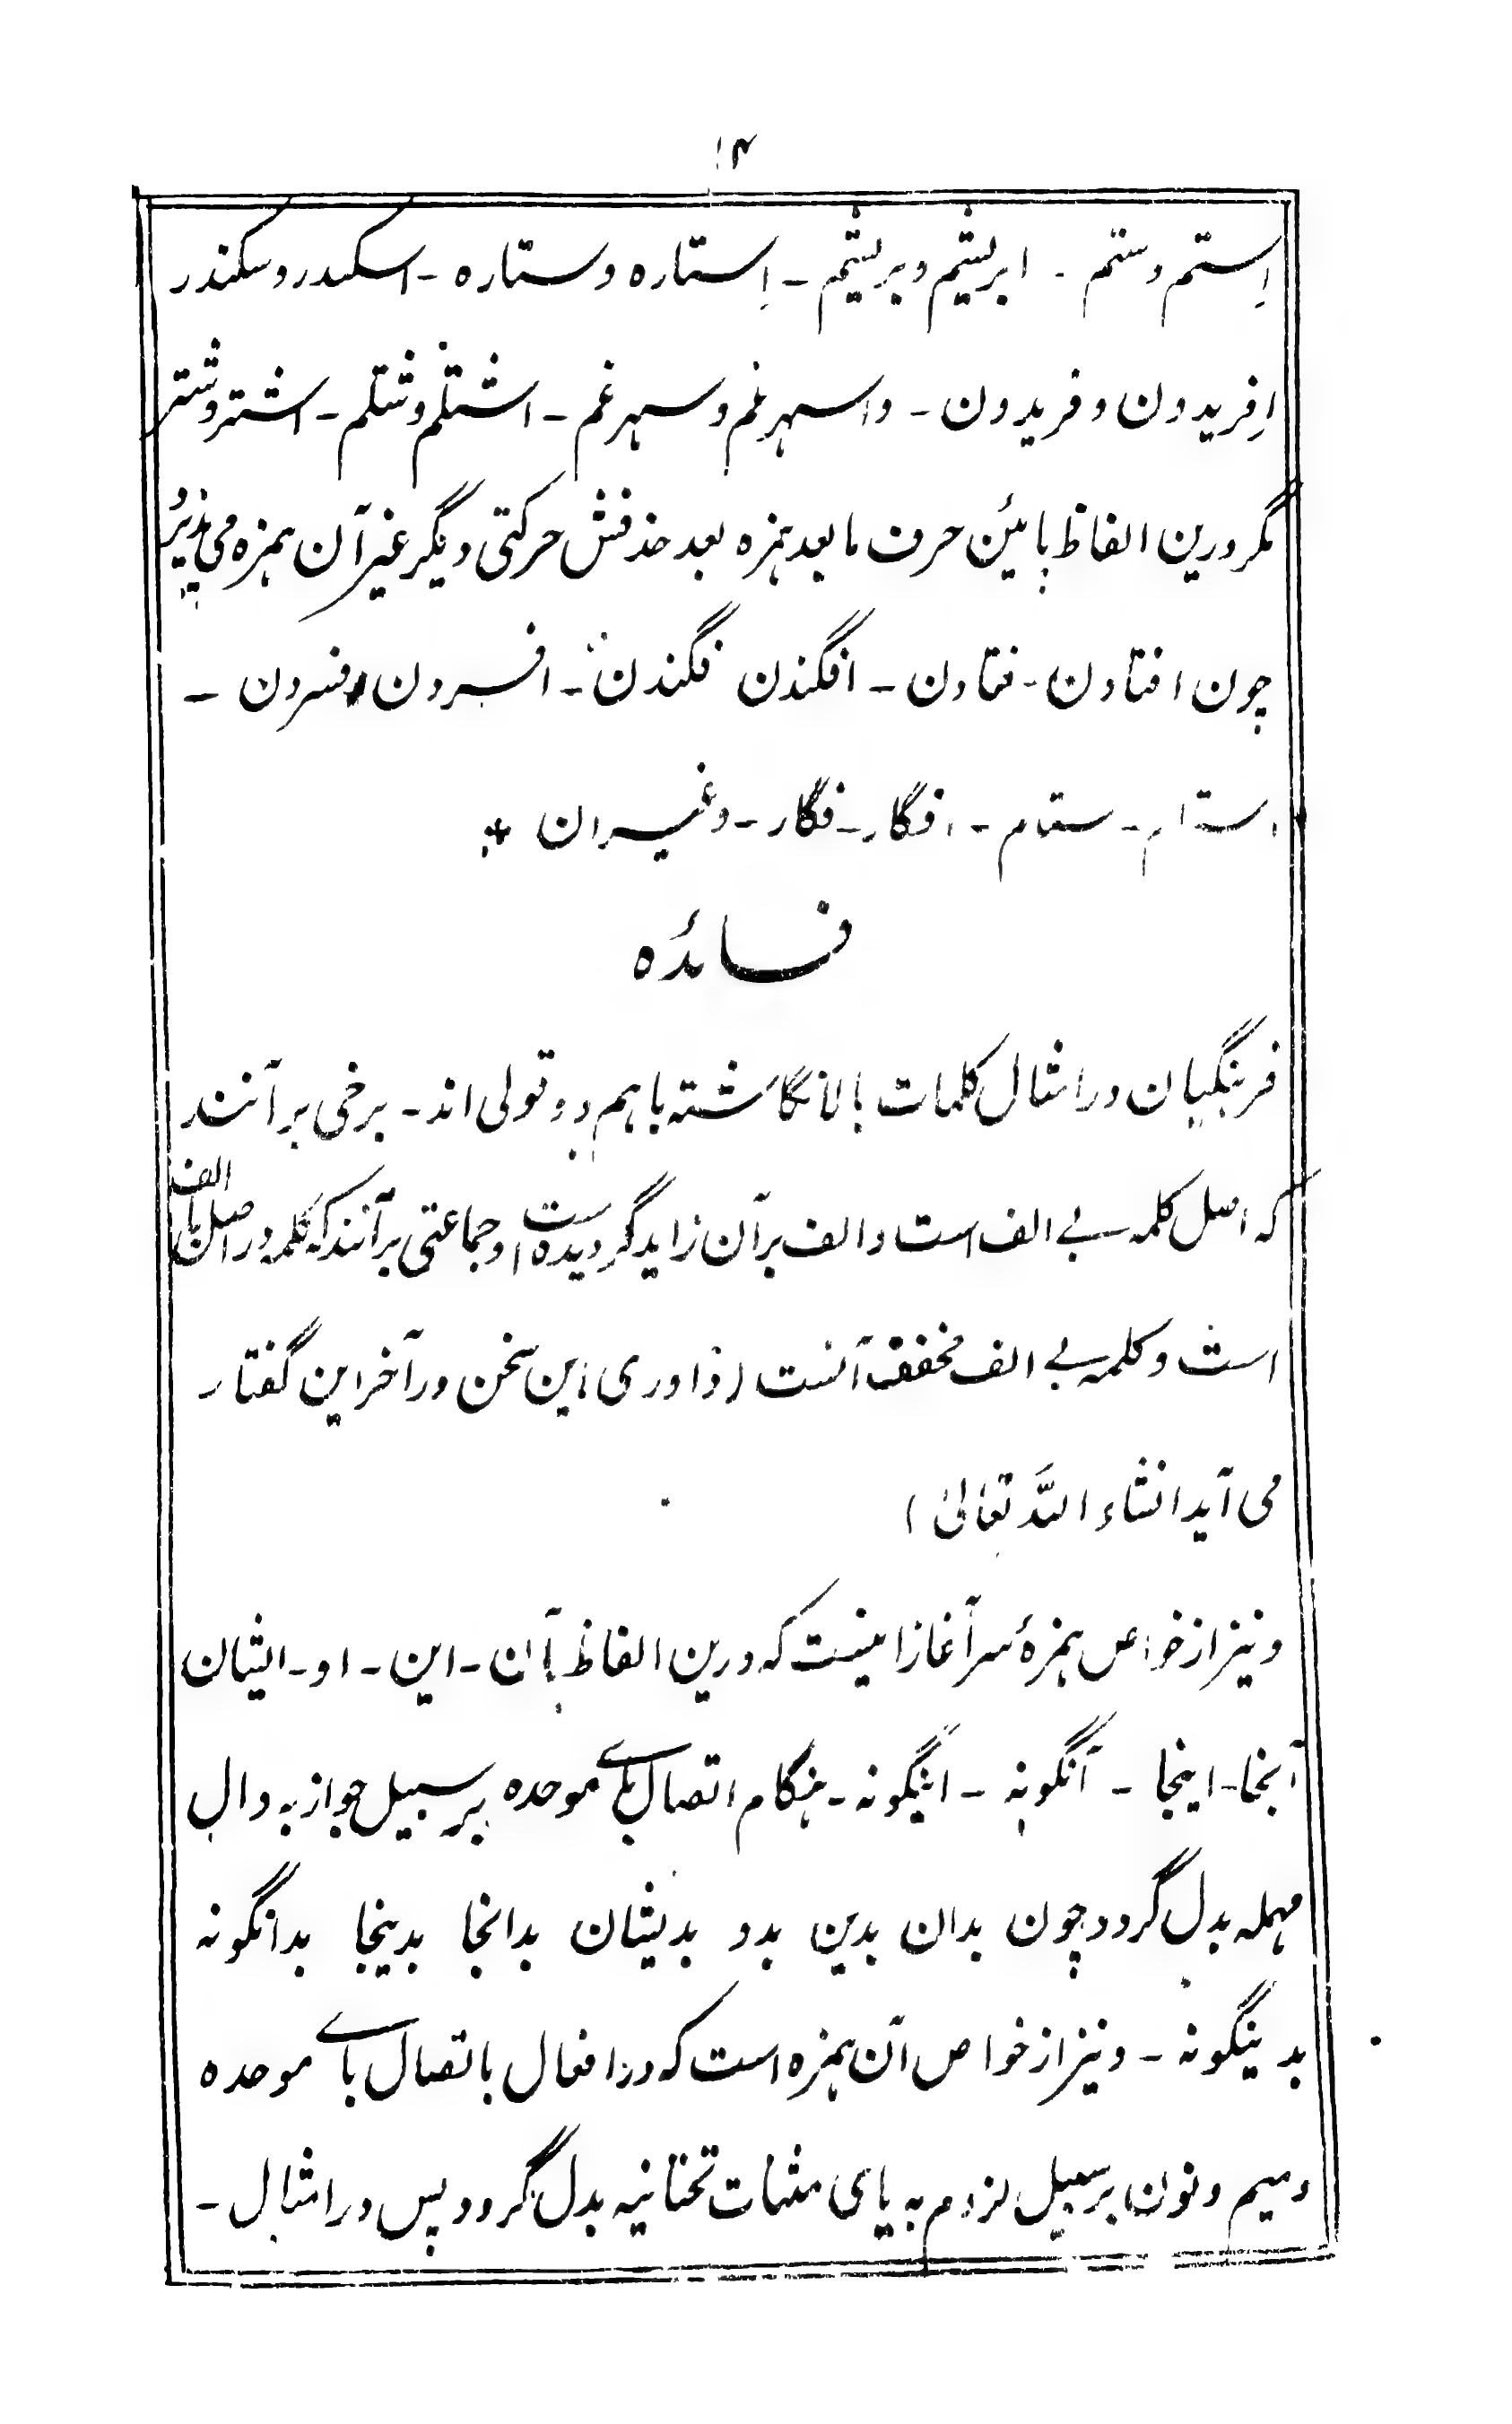 ۱۴
اِستم وستم - ابریشم و بریشم - اِستاره و ستاره - اسکندر و سکندر
اِفریدون و فریدون - و اسپرغم و سپرغم - اشتلم و شتلم - اشتر و شتر
مگر درین الفاظ پائین حرف ما بعد همزه بعد حذفش حرکتی دیگر غیر آن همزه می پذیرد
چون افتادن - فتادن - افگندن فگندن - افسردن فسردن -
استام - ستام - افگار - فگار - و غیر ان
فائده
فرهنگیان در امثال کلمات بالا نگاشته باهم دو قولی اند - برخی بر آنند
که اصل کلمه بے الف است و الف بر آن زاید گردیده است و جماعتی بر آنند که کلمه در اصل با الف
است و کلمه بے الف مخفف آنست (داوری این سخن در آخر این گفتار
می آید انشاء اللہ تعالیٰ)
و نیز از خواص همزهٔ سر آغاز اینست که درین الفاظ آن - این - او - ایشان
آنجا - اینجا - آنگونه - اینگونه - هنگام اتصال باے موحده بر سبیل جواز به دال
مهمله بدل گردد چون بدان بدین بدو بدیشان بدانجا بدینجا بدانگونه
بدینگونه - و نیز از خواص آن همزه است که در افعال باتصال باے موحده
و میم و نون بر سبیل لزوم به یای مثنات تحتانیه بدل گردد پس در امثال -